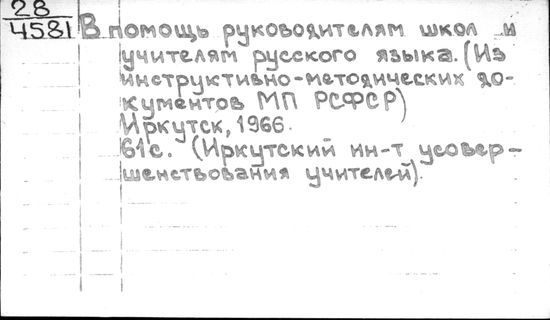 28
4581
В помощь руководителям школ и
учителям русского языка. (Из
инструктивно-методических до-
кументов МП РСФСР)
Иркутск, 1966.
61с. (Иркутский ин-т усовер-
шенствования учителей).